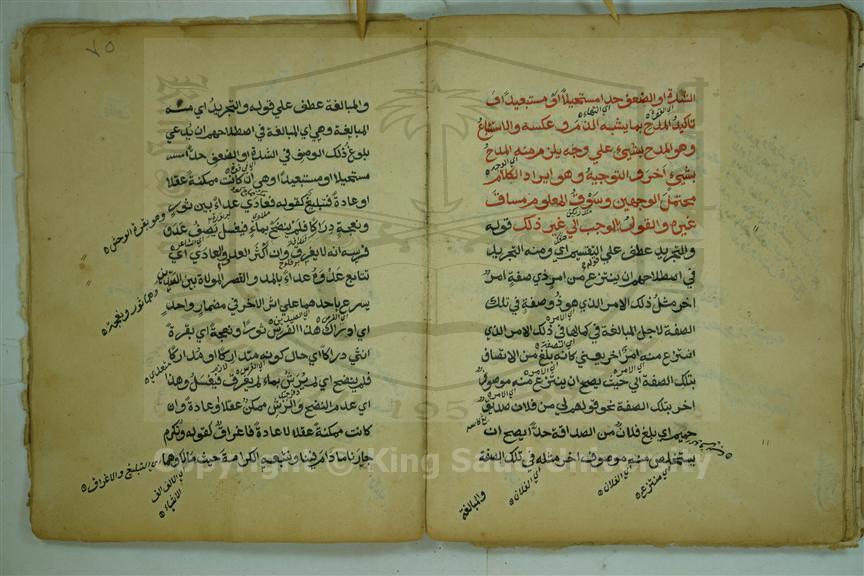 الشدة او الضعف حدا مستحيلا او مستبعيدا او
تاكيد المدح بما يشبه الذم وعكسه والاستتباع
وهو المدح بشيئ على وجه يلزم منه المدح
بشيئ آخر والتوجيه وهو ايراد الكلام
محتمل الوجهين وسوق المعلوم مساق
غيره والقول بالموجب الى غير ذلك قوله
والتجريد عطف على التقسيم اي ومنه التجريد
في اصطلاحهم ان ينتزع من امر ذي صفة امر
آخر مثل ذلك الامر الذي هو ذو صفة في تلك
الصفة لاجل المبالغة في كمالها في ذلك الامر الذي
انتزع منه امرا آخر يعني كانه بلغ من الاتصاف
بتلك الصفة الى حيث يصح ان ينتزع منه موصوف
اخر بتلك الصفة نحو قولهم لي من فلان صديق
حميم اي بلغ فلان من الصداقة حدا يصح ان
يستخلص منه موصوف اخر مثله في تلك الصفة
والمبالغة
٧٥
والمبالغة عطف على قوله والتجريد اي منه
المبالغة وهي اي المبالغة في اصطلاحهم ان يدعي
بلوغ ذلك الوصف في الشدة او الضعف حدا
مستحيلا او مستبعيدا وهي ان كانت ممكنة عقلا
او عادة فتبليغ كقوله فعادى عداء بين ثور
ونعجة دراكا فلم ينضح بماء فيغسل يصف
فرسه انه لا يعرق وان اكثر العدو والعادي اي
تتابع عدوه عداء بالمد والقصر الموالاة بين الصيدين
يسرع باحدهما على اثر الآخر في مضمار واحد
اي اوراك هذا الفرس ثورا ونعجة اي بقرة
انثى دراكا اي حال كونه متداركا او مداركا
فلم ينضح اي لم يرش بماء لم يعرق فيغسل وهذا
اي عدم النضح والرش ممكن عقلا وعادة وان
كانت ممكنة عقلا لا عادة فاغراق كقوله ونكرم
جارنا ما دام فينا ونتبعه الكرامة حيث مالا وهما
وهو بقرة الوحش
وهما ثور ونعجة
اي التبليغ والاغراق
Copyright © King Saud University
1957